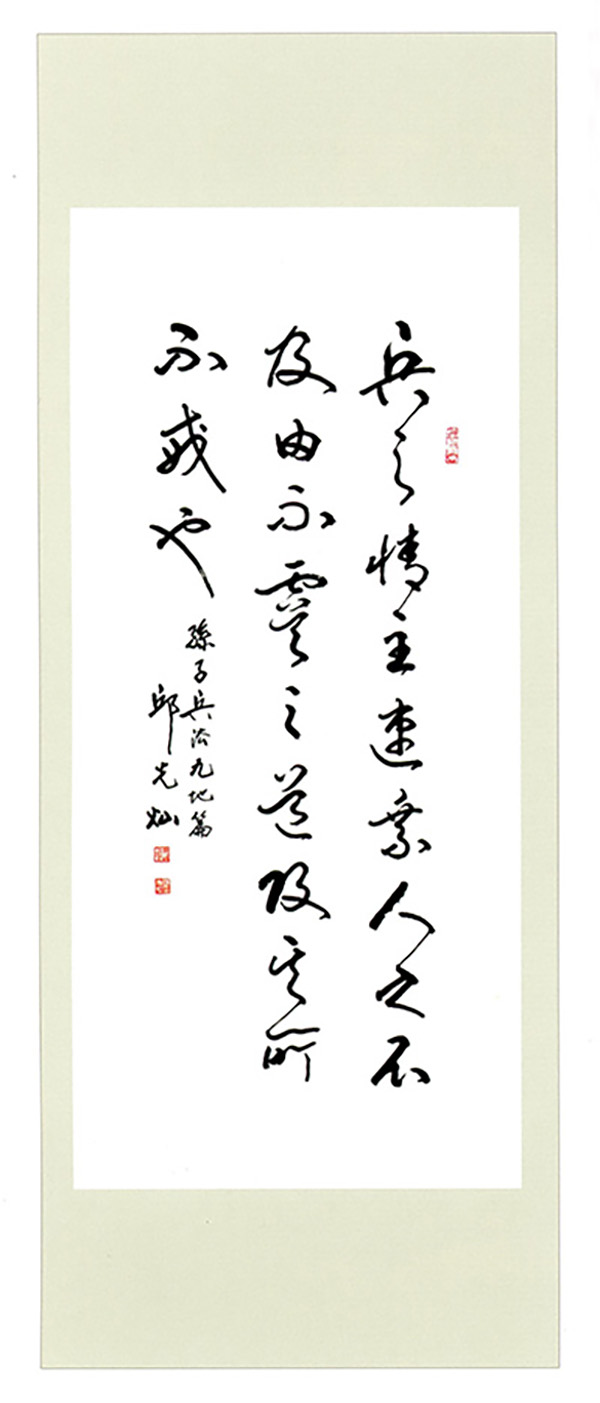 兵之情主速乘人之不
及由不虞之道攻其所
不戒也
孫子兵法九地篇
邱光灿